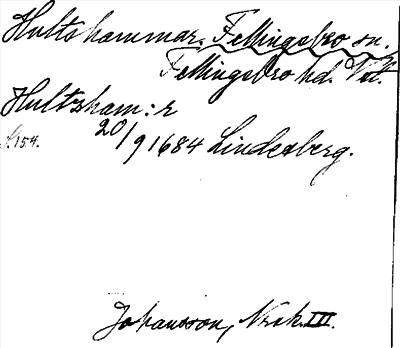 Hultshammar. Fellingsbro sn.
Fellingsbro hd. Vstl.
Hultzham: r
S. 154. 20/9 1684 Lindesberg.
Johansson, Norsk. III.